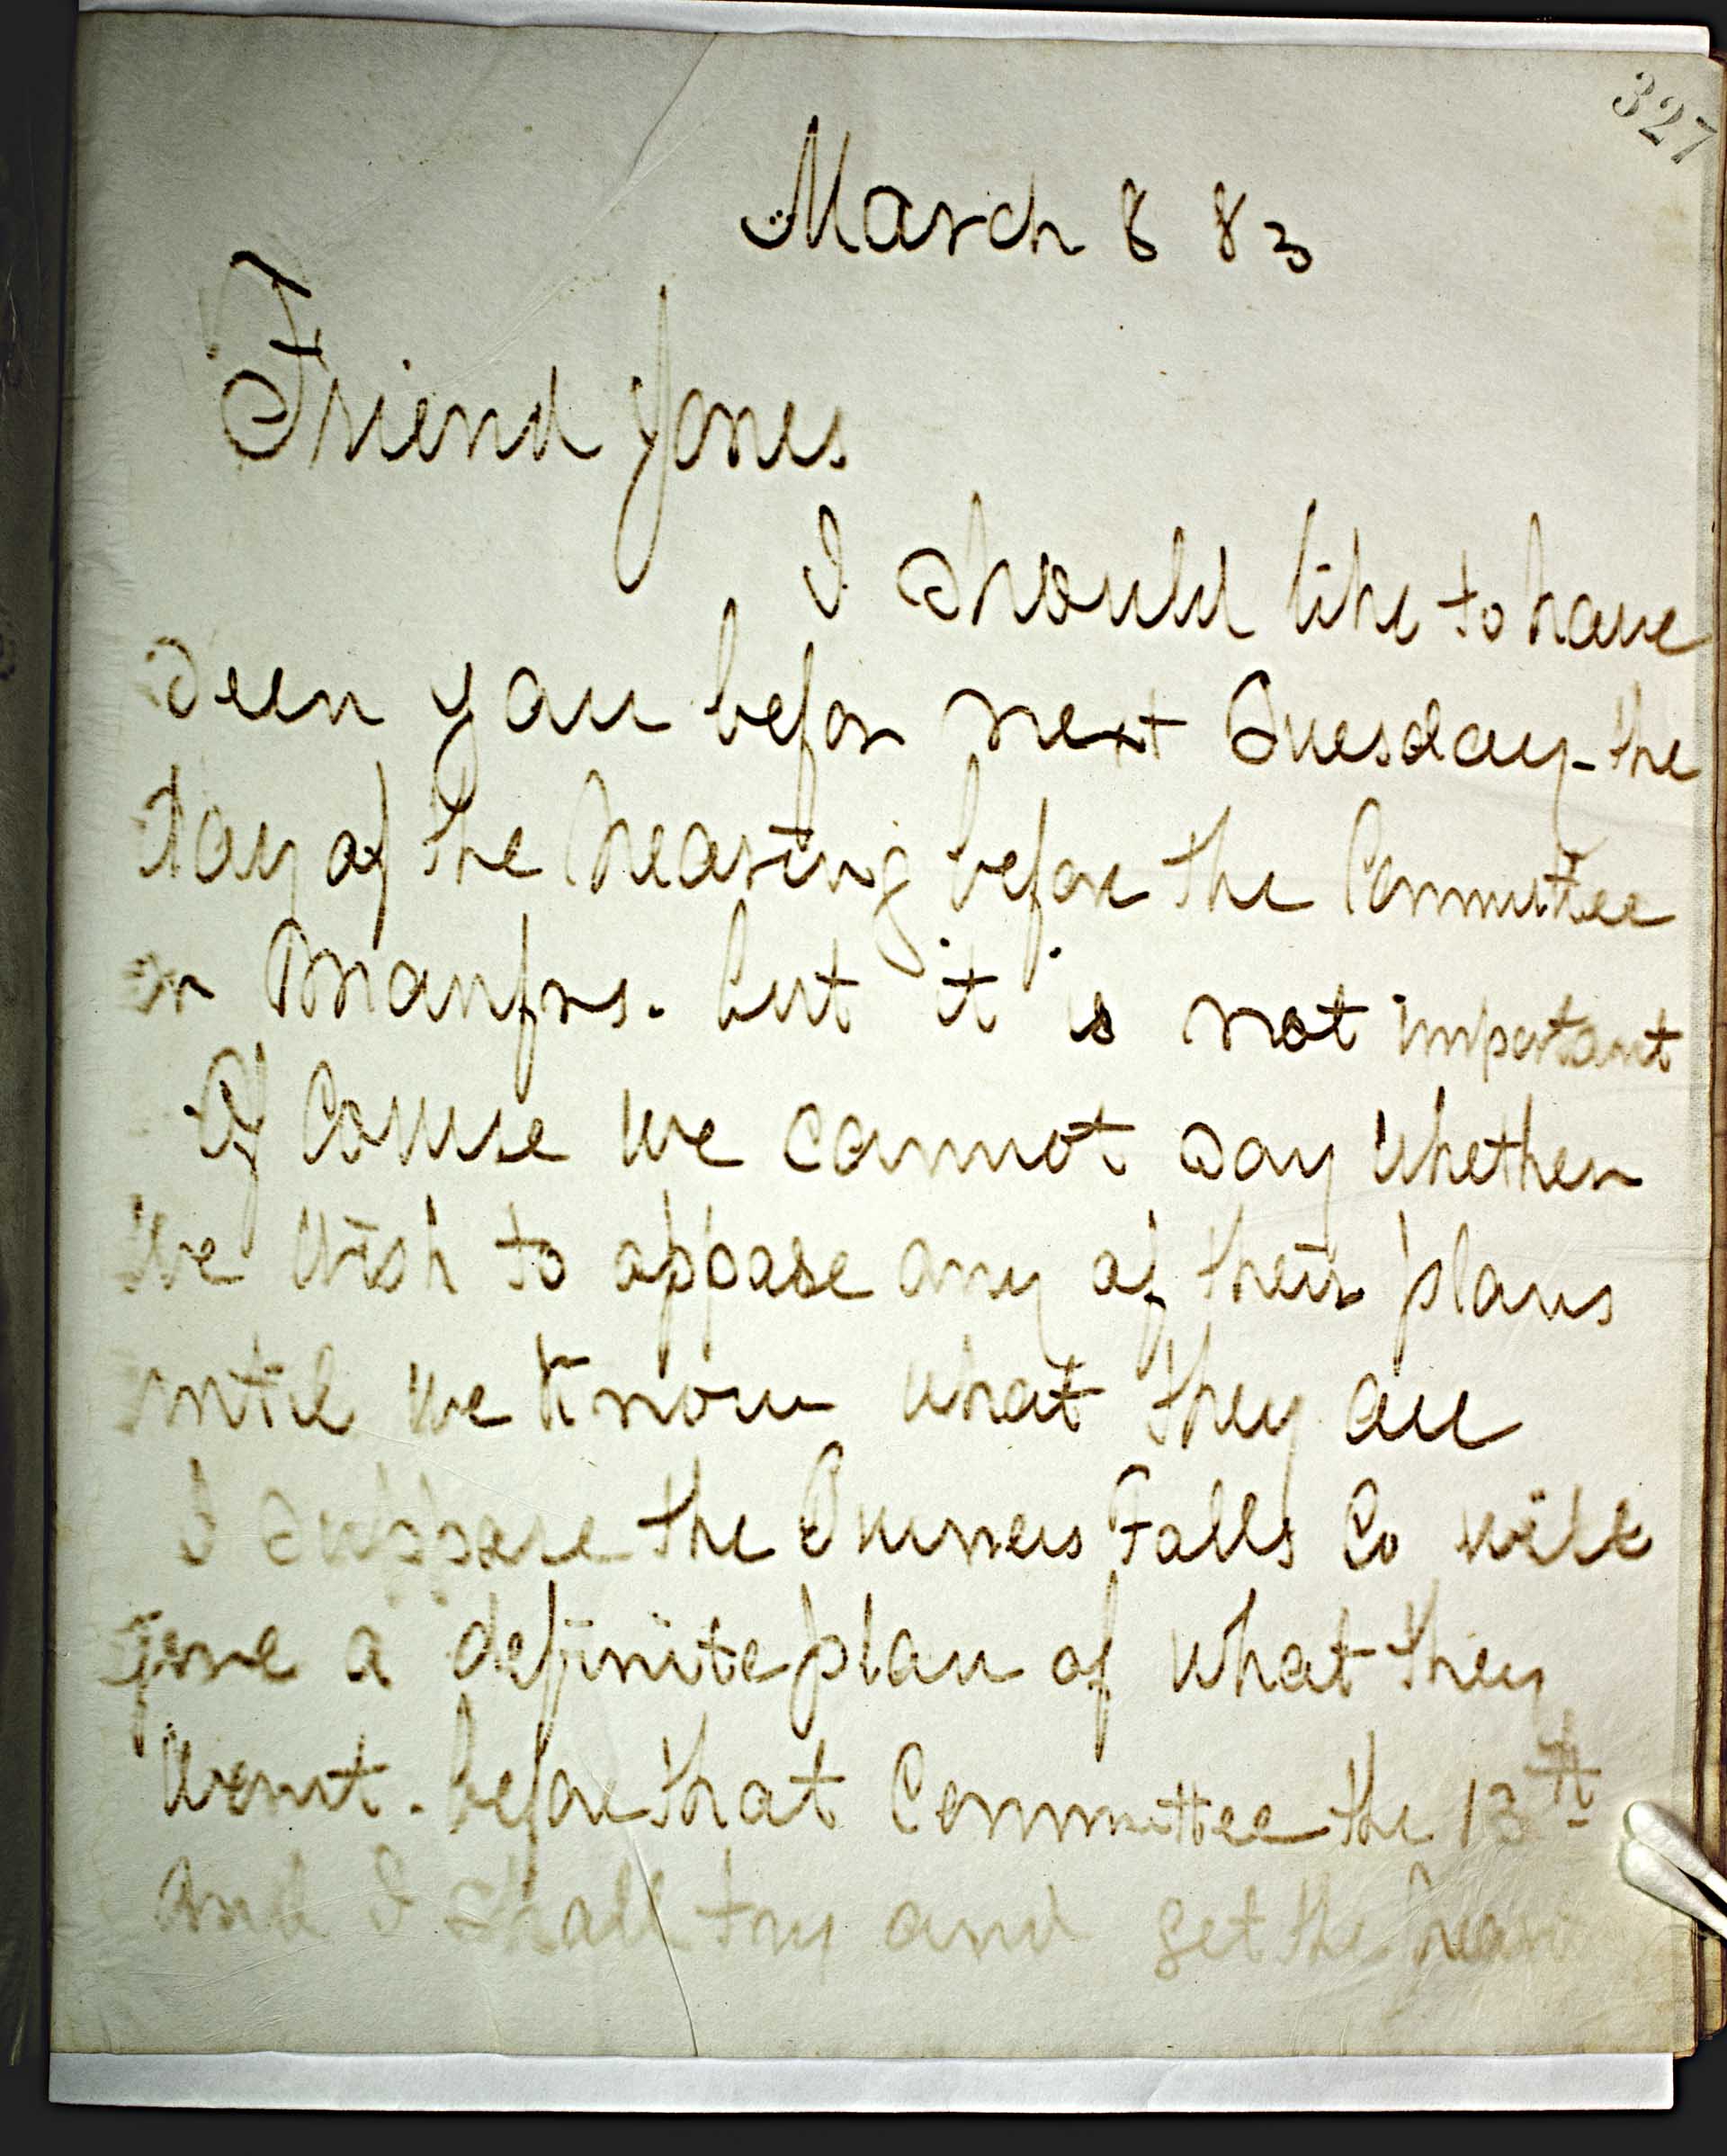 327
March 8 83
Friend Jones
I should like to have
seen you before next Tuesday - the
day of the hearing before the Committee
on Manfrs. but it is not important
Of Course we cannot say whether
we wish to oppose any of their plans
until we know what they are
I suppose the Turners Falls Co will
give a definite plan of what they
want. before that Committee the 13th
and I shall try and get the